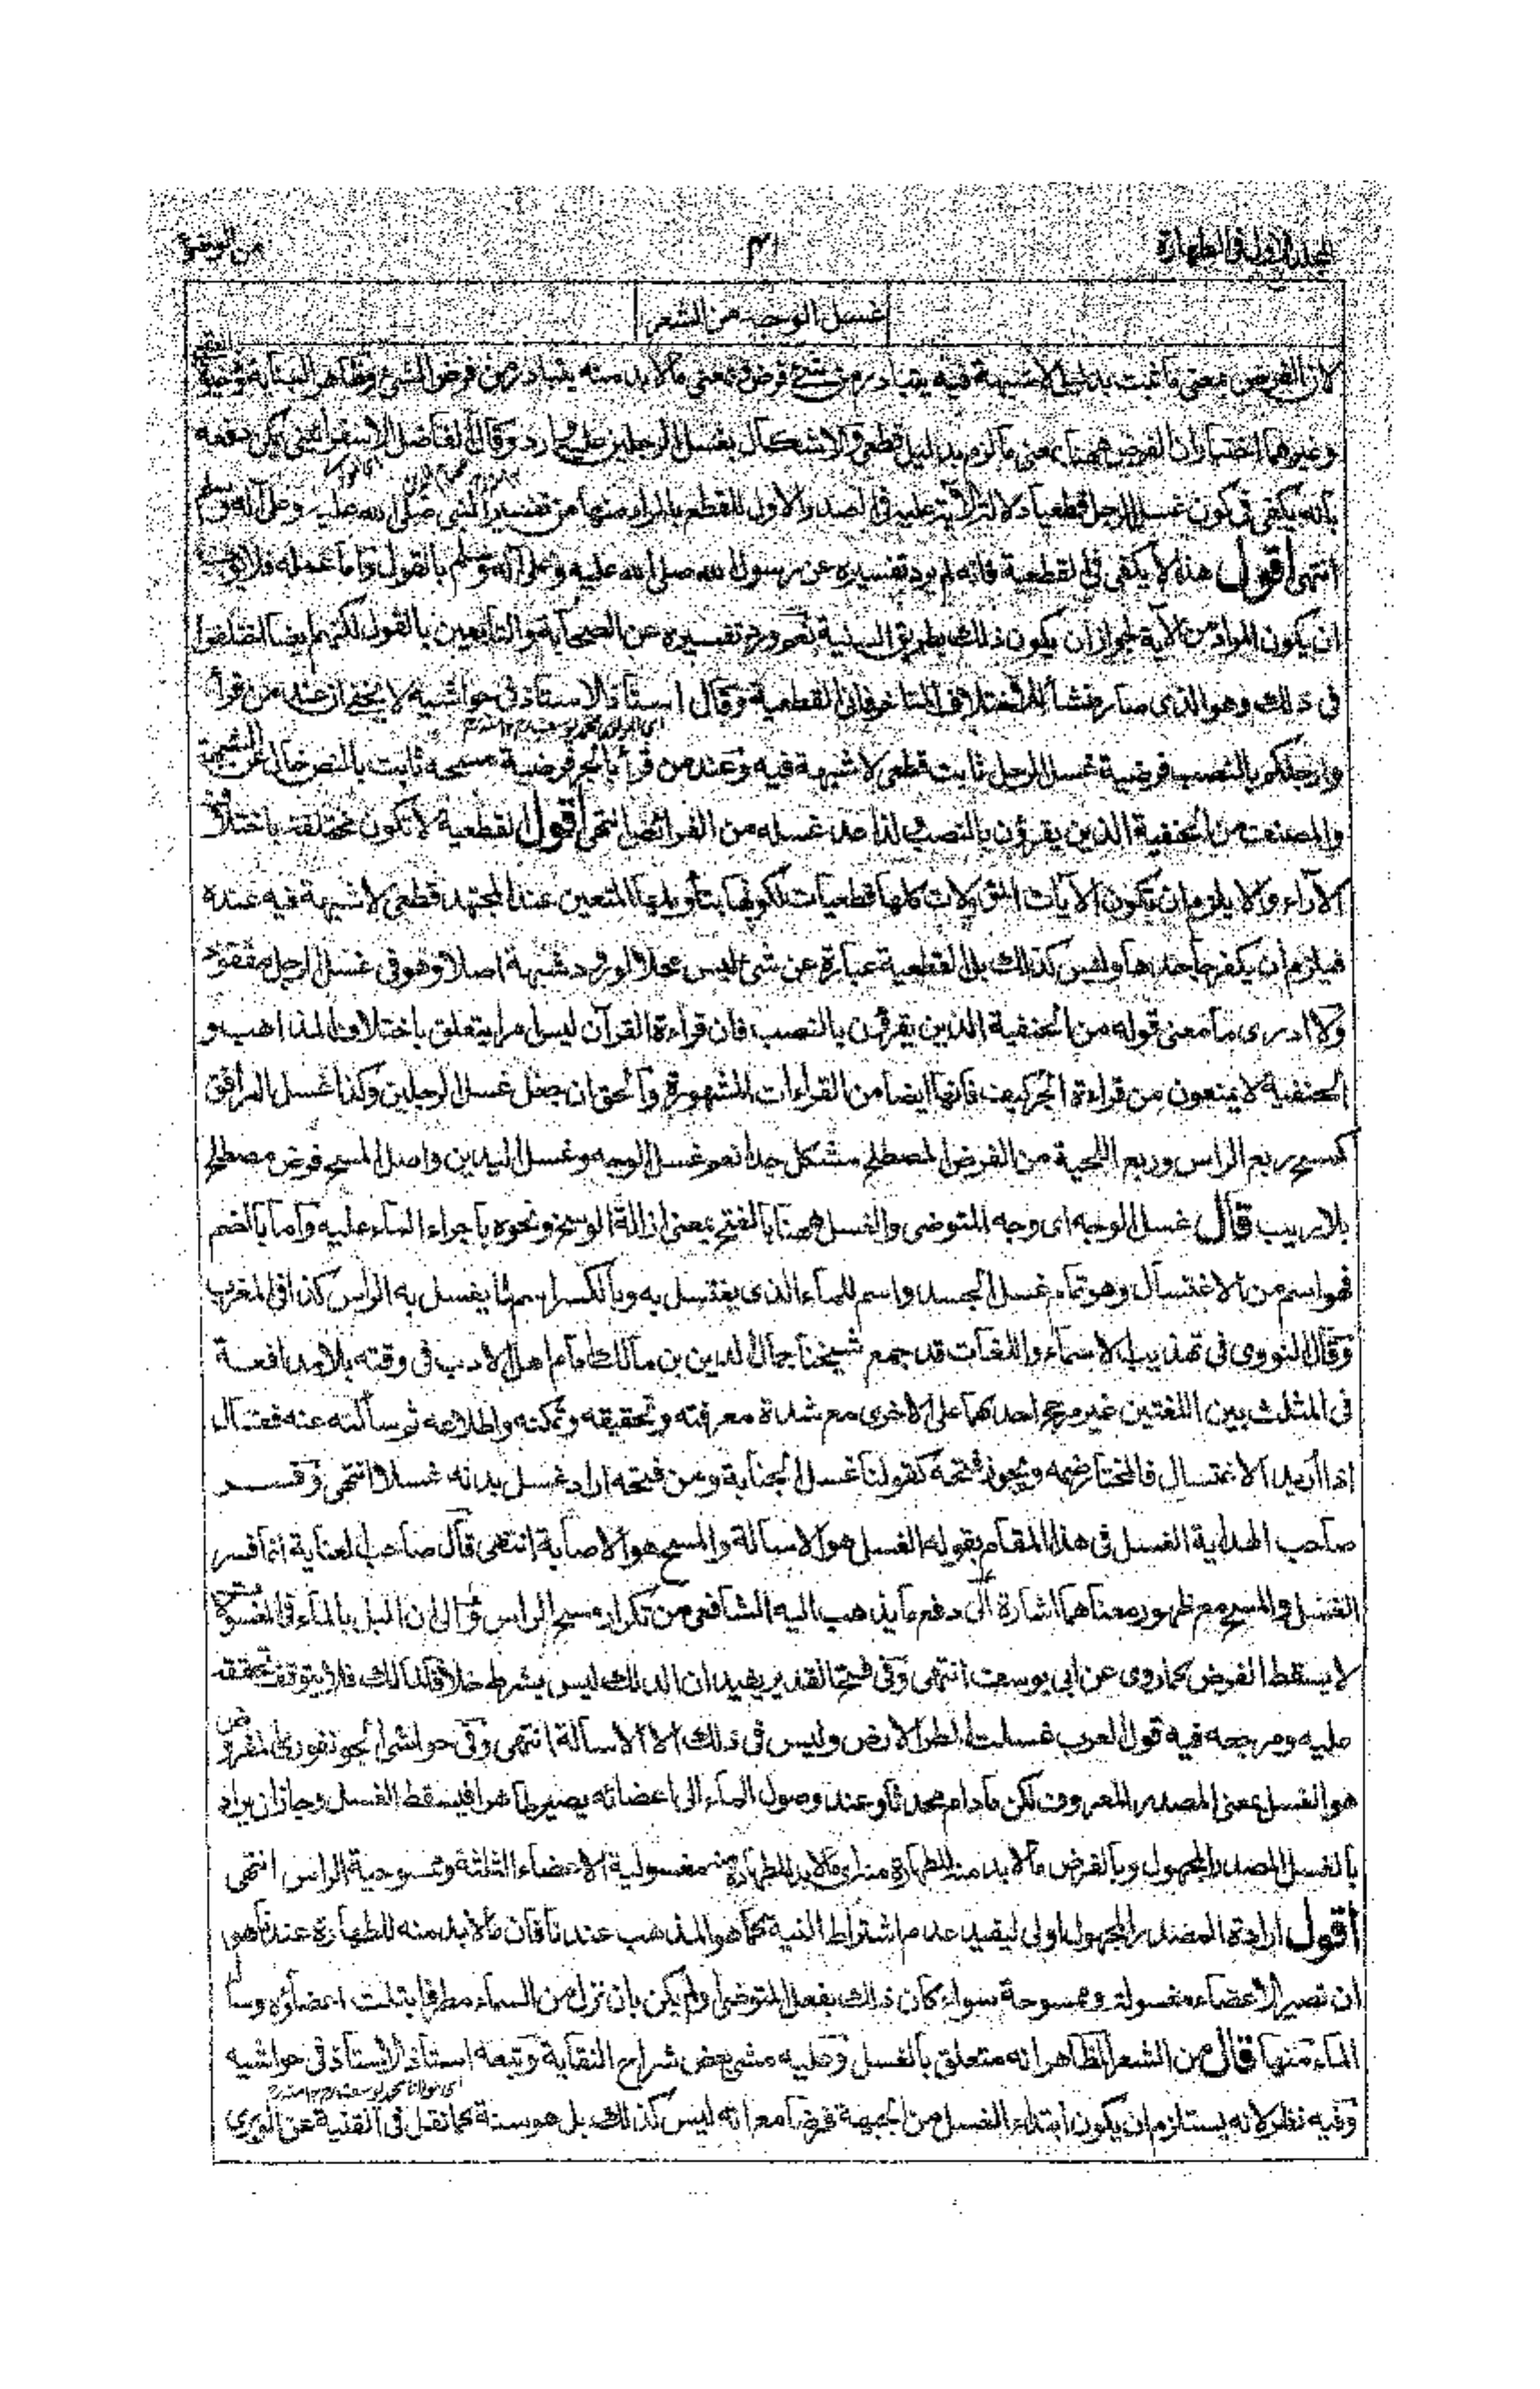 المجلد الاول فى الطهارة
٣١
من الوضوء
غسل الوجه من الشعر
لان الفرض بمعنى ما ثبت بدليل لا شبهة فيه يتبادر من شئ فرض وبمعنى ما لا بد منه يتبادر من فرض الشئ وظاهر البناية
وغيرهما اختيار ان الفرض ههنا بمعنى ما لزم بدليل قطعى والاشكال بغسل الرجلين وارد وقال الفاضل الاسفرائنى يمكن دفعه
بانه يكفى فى كون غسل الرجل قطعيا دلالة الآية عليه فى الصدر الاول للقطع بالمراد منها من تفسير النبى صلى الله عليه وعلى آله وسلم
انتهى اقول هذا لا يكفى فى القطعية فانه لم يرد تفسيره عن رسول الله صلى الله عليه وعلى آله وسلم بالقول واما عمله فلا يوجب
ان يكون المراد من الآية لجواز ان يكون ذلك بطريق السنية نعم ورد تفسيره عن الصحابة والتابعين بالقول لكنهم ايضا اختلفوا
فى ذلك وهو الذى صار منشأ لاختلاف المتأخر فانى القطعية وقال استاذ الاستاذ فى حواشيه لا يخفى ان عند من قرأ
اى المولوى محمد يوسف
وارجلكم بالنصب فرضية غسل الرجل ثابت قطعى لا شبهة فيه وعند من قرأ بالجر فرضية مسحه ثابت بالنص خال عن الشبهة
والمصنف من الحنفية الذين يقرؤن بالنصب لذا عد غسله من الفرائض انتهى اقول القطعية لا تكون مختلفة باختلاف
الآراء والا يلزم ان تكون الآيات المؤولات كلها قطعيات لكونها بتأويلها المتعين عند المجتهد قطعى لا شبهة فيه عنده
فيلزم ان يكفر جاحدها وليس كذلك بل القطعية عبارة عن شئ ليس محلا لورود شبهة اصلا وهو فى غسل الرجل مفقود
ولا ادرى ما معنى قوله من الحنفية الذين يقرؤن بالنصب فان قراءة القرآن ليس امرا يتعلق باختلاف المذاهب و
الحنفية لا يمنعون من قراءة الجر كيف فانها ايضا من القراءات المشهورة والحق ان جعل غسل الرجلين وكذا غسل المرافق
كمسح ربع الراس وربع اللحية من الفرض المصطلح مشكل جدا نعم غسل الوجه وغسل اليدين واصل المسح فرض مصطلح
بلا ريب قال غسل الوجه اى وجه المتوضى والغسل ههنا بالفتح بمعنى ازالة الوسخ ونحوه باجراء الماء عليه واما بالضم
فهو اسم من الاغتسال وهو تمام غسل الجسد واسم للماء الذى يغتسل به وبالكسر اسم لما يغسل به الراس كذا فى المغرب
وقال النووى فى تهذيب الاسماء واللغات قد جمع شيخنا جمال الدين بن مالك امام اهل الادب فى وقته بلا مدافعة
فى المثلث بين اللغتين غير مرجح احدهما على الاخرى مع شدة معرفته وتحقيقه وتمكنه واطلاعه ثم سألته عنه فقال
اذا اريد الاغتسال فالمختار ضمه ويجوز فتحه كقولنا غسل الجنابة ومن فتحه اراد غسل بدنه غسلا انتهى وفسر
صاحب الهداية الغسل فى هذا المقام بقوله الغسل هو الاسالة والمسح هو الاصابة انتهى قال صاحب العناية انما فسر
الغسل والمسح مع ظهور معناهما اشارة الى دفع ما يذهب اليه الشافعى من تكرار مسح الراس والى ان البل بالماء فى المغسولة
لا يسقط الفرض كما روى عن ابى يوسف انتهى وفى فتح القدير يفيد ان الدلك ليس بشرط خلافا لمالك فلا يتوقف تحققه
عليه ومرجعه فيه قول العرب غسلت المطر الارض وليس فى ذلك الا الاسالة انتهى وفى حواشى الجونفورى المفروض
هو الغسل بمعنى المصدر المعروف لكن ما دام محدثا وعند وصول الماء الى اعضائه يصير طاهرا فيسقط الغسل وجاز ان يراد
بالغسل المصدر المجهول وبالفرض ما لا بد منه للطهارة مغسولية الاعضاء الثلثة وممسوحية الراس انتهى
اقول ارادة المصدر المجهول اولى ليفيد عدم اشتراط النية كما هو المذهب عندنا فان ما لا بد منه للطهارة عندنا هو
ان تصير الاعضاء مغسولة وممسوحة سواء كان ذلك بفعل المتوضى او لم يكن بان نزل من السماء مطر فابتلت اعضاؤه وسال
الماء منها قال من الشعر الظاهر انه متعلق بالغسل وعليه مشى بعض شراح النقاية وتبعه استاذ الاستاذ فى حواشيه
اى مولانا محمد يوسف
وفيه نظر لانه يستلزم ان يكون ابتداء الغسل من الجبهة فرضا مع انه ليس كذلك بل هو سنة كما نقل فى القنية عن